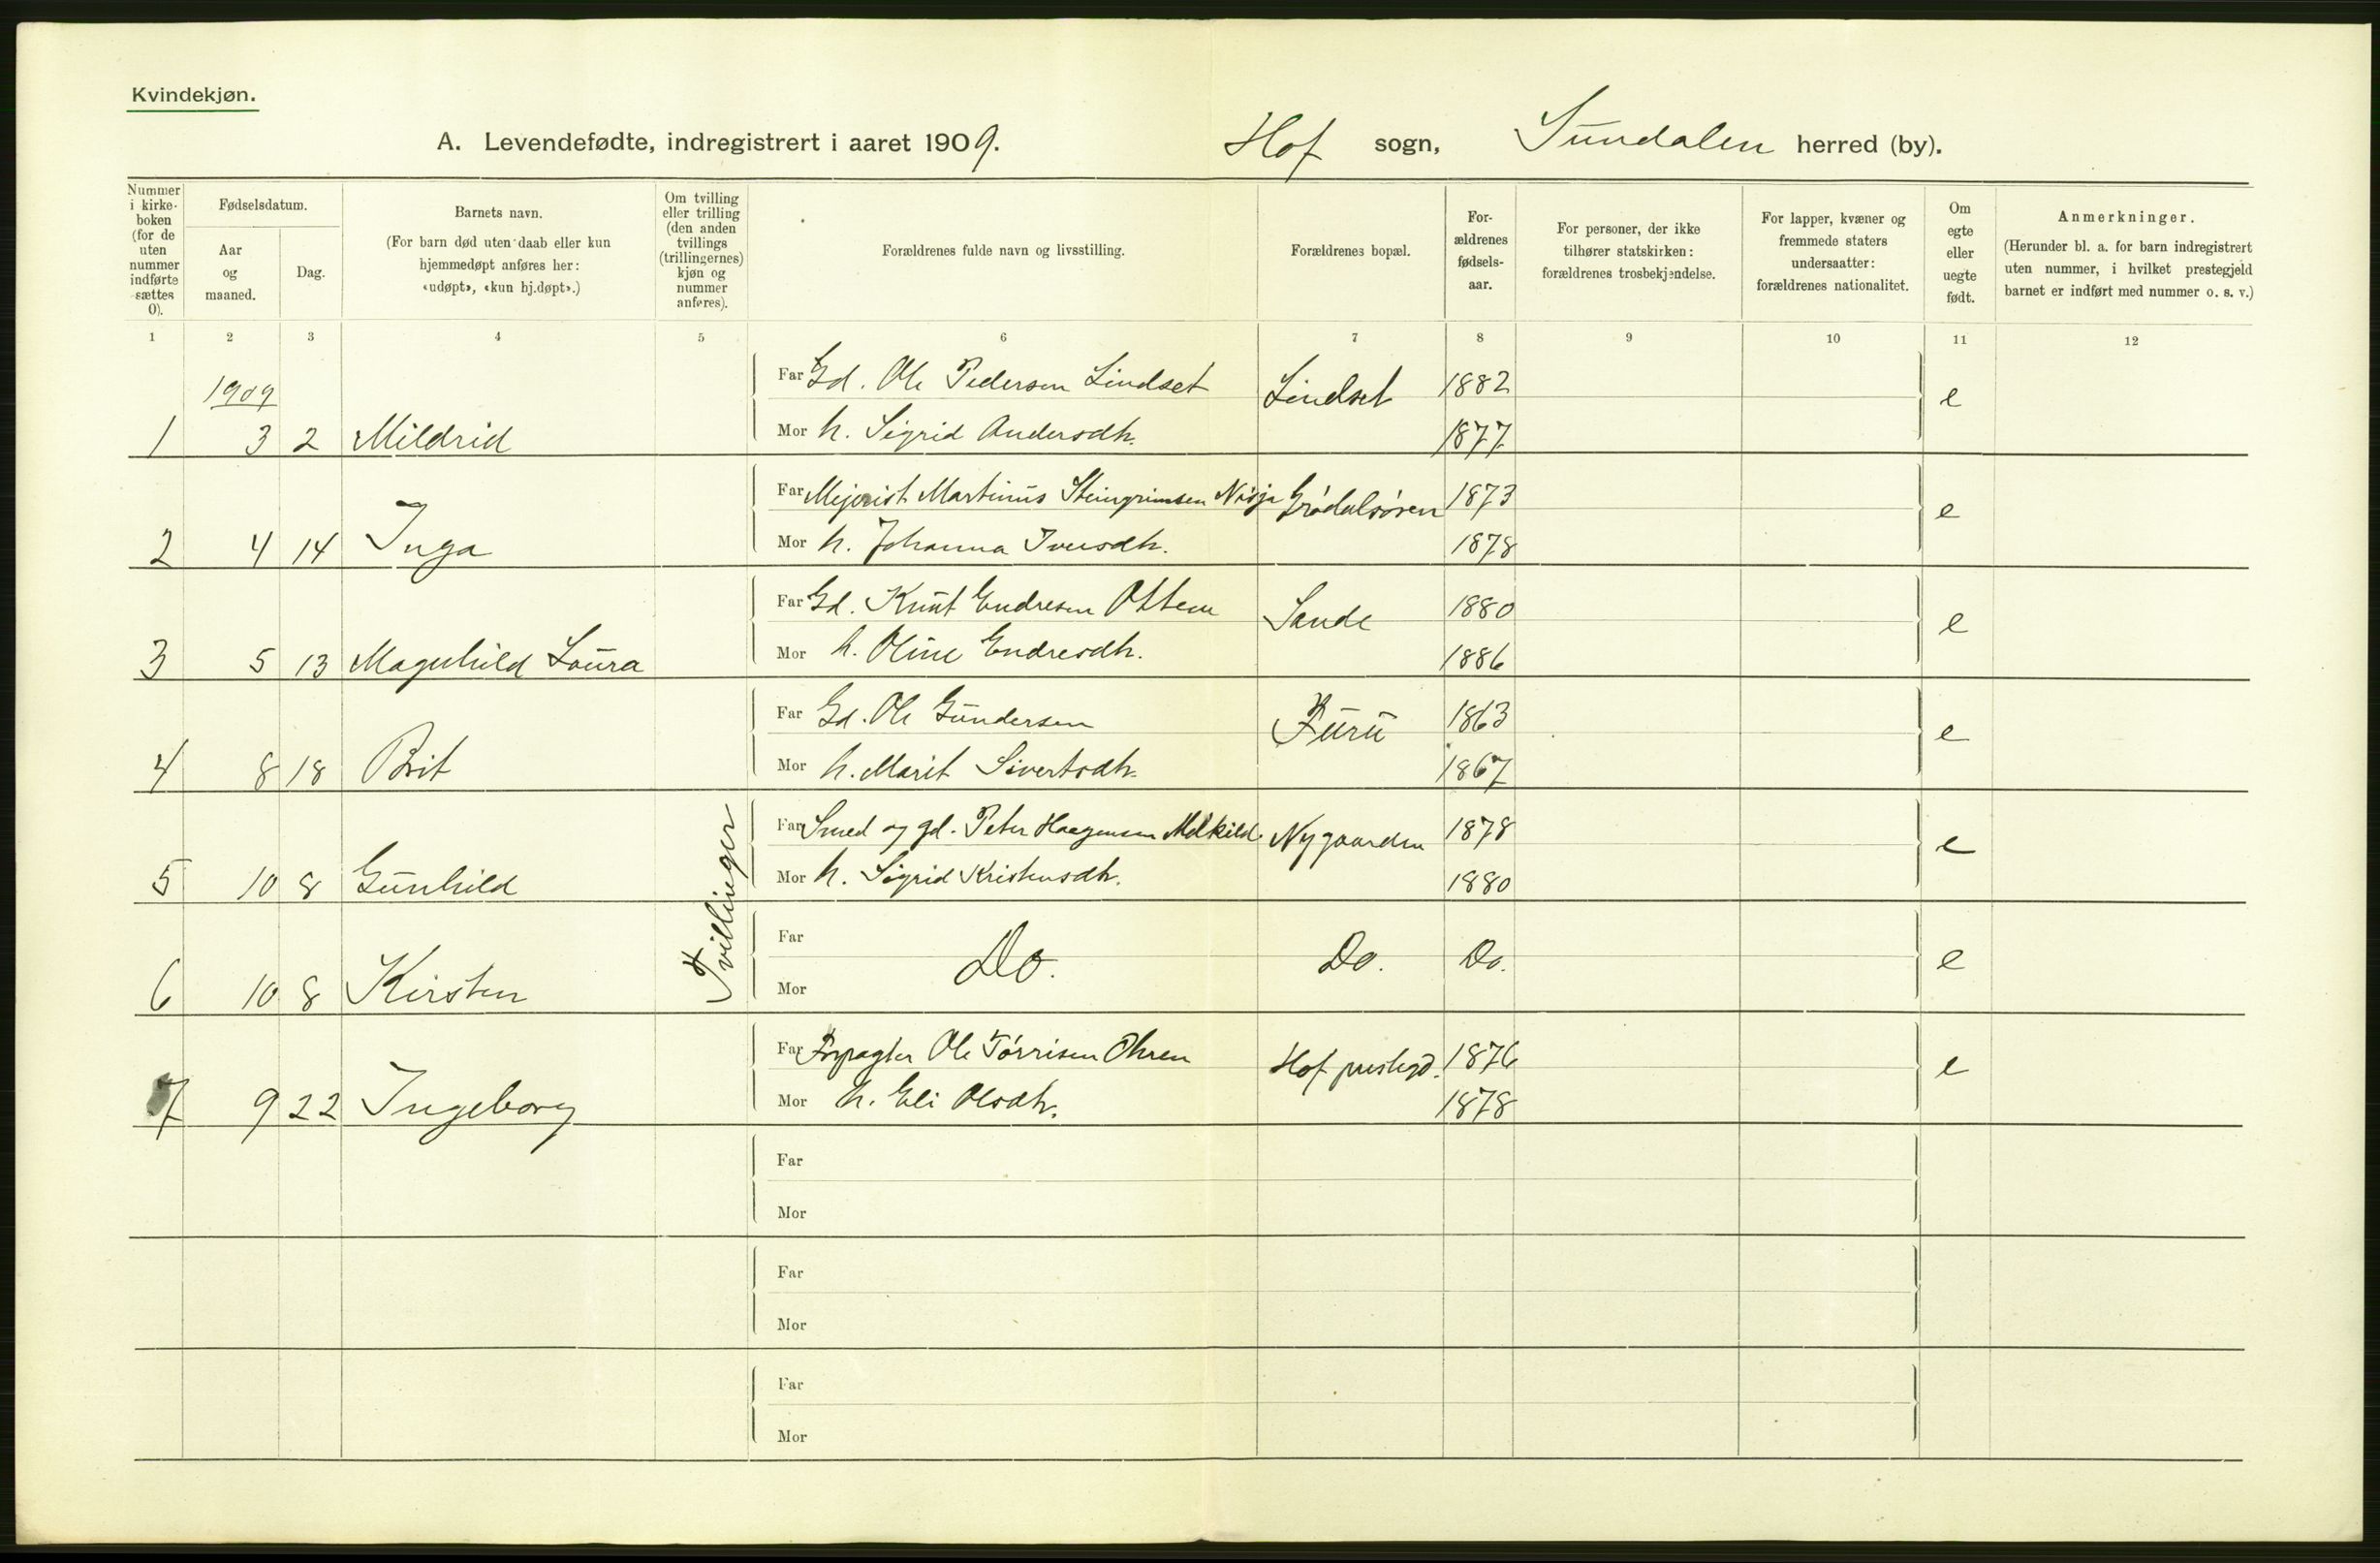 Kvindekjøn.
A. Levendefødte, indregistrert i aaret 1909. Hof sogn, Sundalen herred (by).
Nummer i kirkeboken (for de uten nummer indførte sættes 0).
Fødselsdatum.
Aar og maaned.
Dag.
Barnets navn.
(For barn død uten daab eller kun hjemmedøpt anføres her: «udøpt», «kun hj.døpt».)
Om tvilling eller trilling (den anden tvillings (trillingernes) kjøn og nummer anføres).
Forældrenes fulde navn og livsstilling.
Forældrenes bopæl.
Forældrenes fødselsaar.
For personer, der ikke tilhører statskirken: forældrenes trosbekjendelse.
For lapper, kvæner og fremmede staters undersaatter: forældrenes nationalitet.
Om egte eller uegte født.
Anmerkninger.
(Herunder bl. a. for barn indregistrert uten nummer, i hvilket prestegjeld barnet er indført med nummer o. s. v.)
1 2 3 4 5 6 7 8 9 10 11 12
1909
Far Gd. Ole Pedersen Lindset Lindset 1882 e
1 3 2 Mildrid Mor h. Sigrid Andersdtr. 1877
Far Mejerist Martinus Steingrimsen Nisja Grødalsøren 1873 e
2 4 14 Inga Mor h. Johanna Iversdtr. 1878
Far Gd. Knut Endresen Ottem Sande 1880 e
3 5 13 Magnhild Loura Mor h. Oline Endresdtr. 1886
Far Gd. Ole Gundersen Furu 1863 e
4 8 18 Brit Mor h. Marit Sivertsdtr. 1867
Far Smed og gd. Peter Haagensen Melkild Nygaarden 1878 e
5 10 8 Gunhild Tvillinger Mor h. Sigrid Kristensdtr. 1880
Far Do. Do. Do. e
6 10 8 Kirsten Mor
Far Forpagter Ole Tørrisen Ohren Hof prestegd. 1876 e
7 9 22 Ingeborg Mor h. Eli Olsdtr. 1878
Far
Mor
Far
Mor
Far
Mor